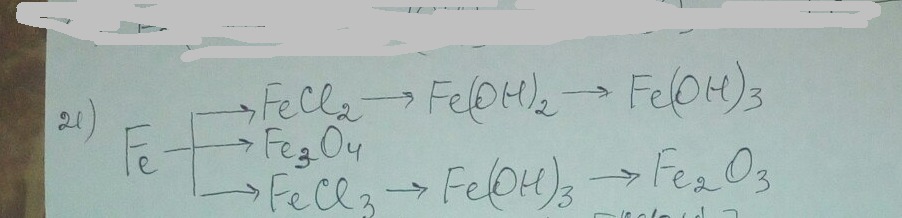 21) FeCl₂ → Fe(OH)₂ → Fe(OH)₃
Fe → Fe₃O₄
→ FeCl₃ → Fe(OH)₃ → Fe₂O₃